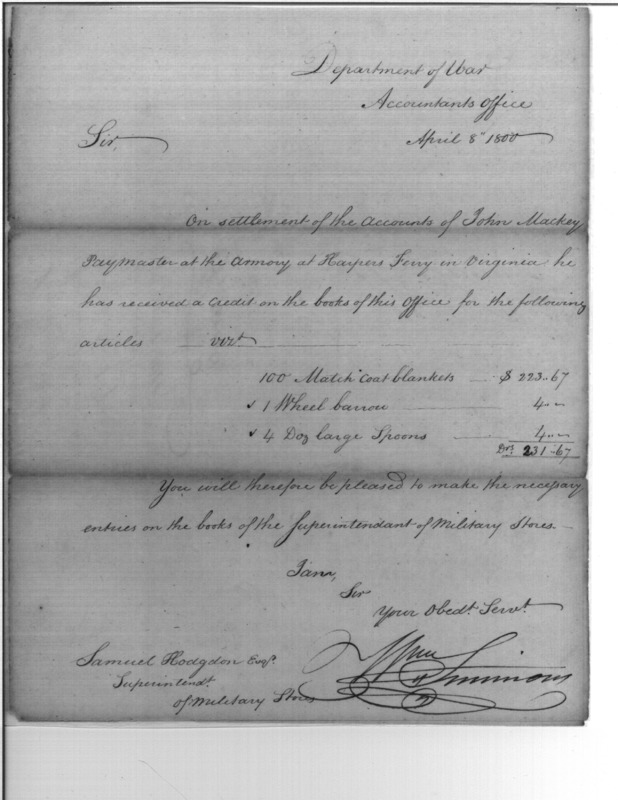 Department of War
Accountants Office
Sir, April 8" 1800
On settlement of the accounts of John Mackey
Paymaster at the Armory at Harpers Ferry in Virginia he
has received a credit on the books of this Office for the following
articles vizt
100 Match Coat blankets $ 223..67
1 Wheel barrow 4..
4 Doz large Spoons 4..
Drs 231..67
You will therefore be pleased to make the necessary
entries on the books of the Superintendant of Military Stores.
I am,
Sir
Your Obedt Servt
Wm Simmons
Samuel Hodgdon Esqr.
Superintendt
of Military Stores